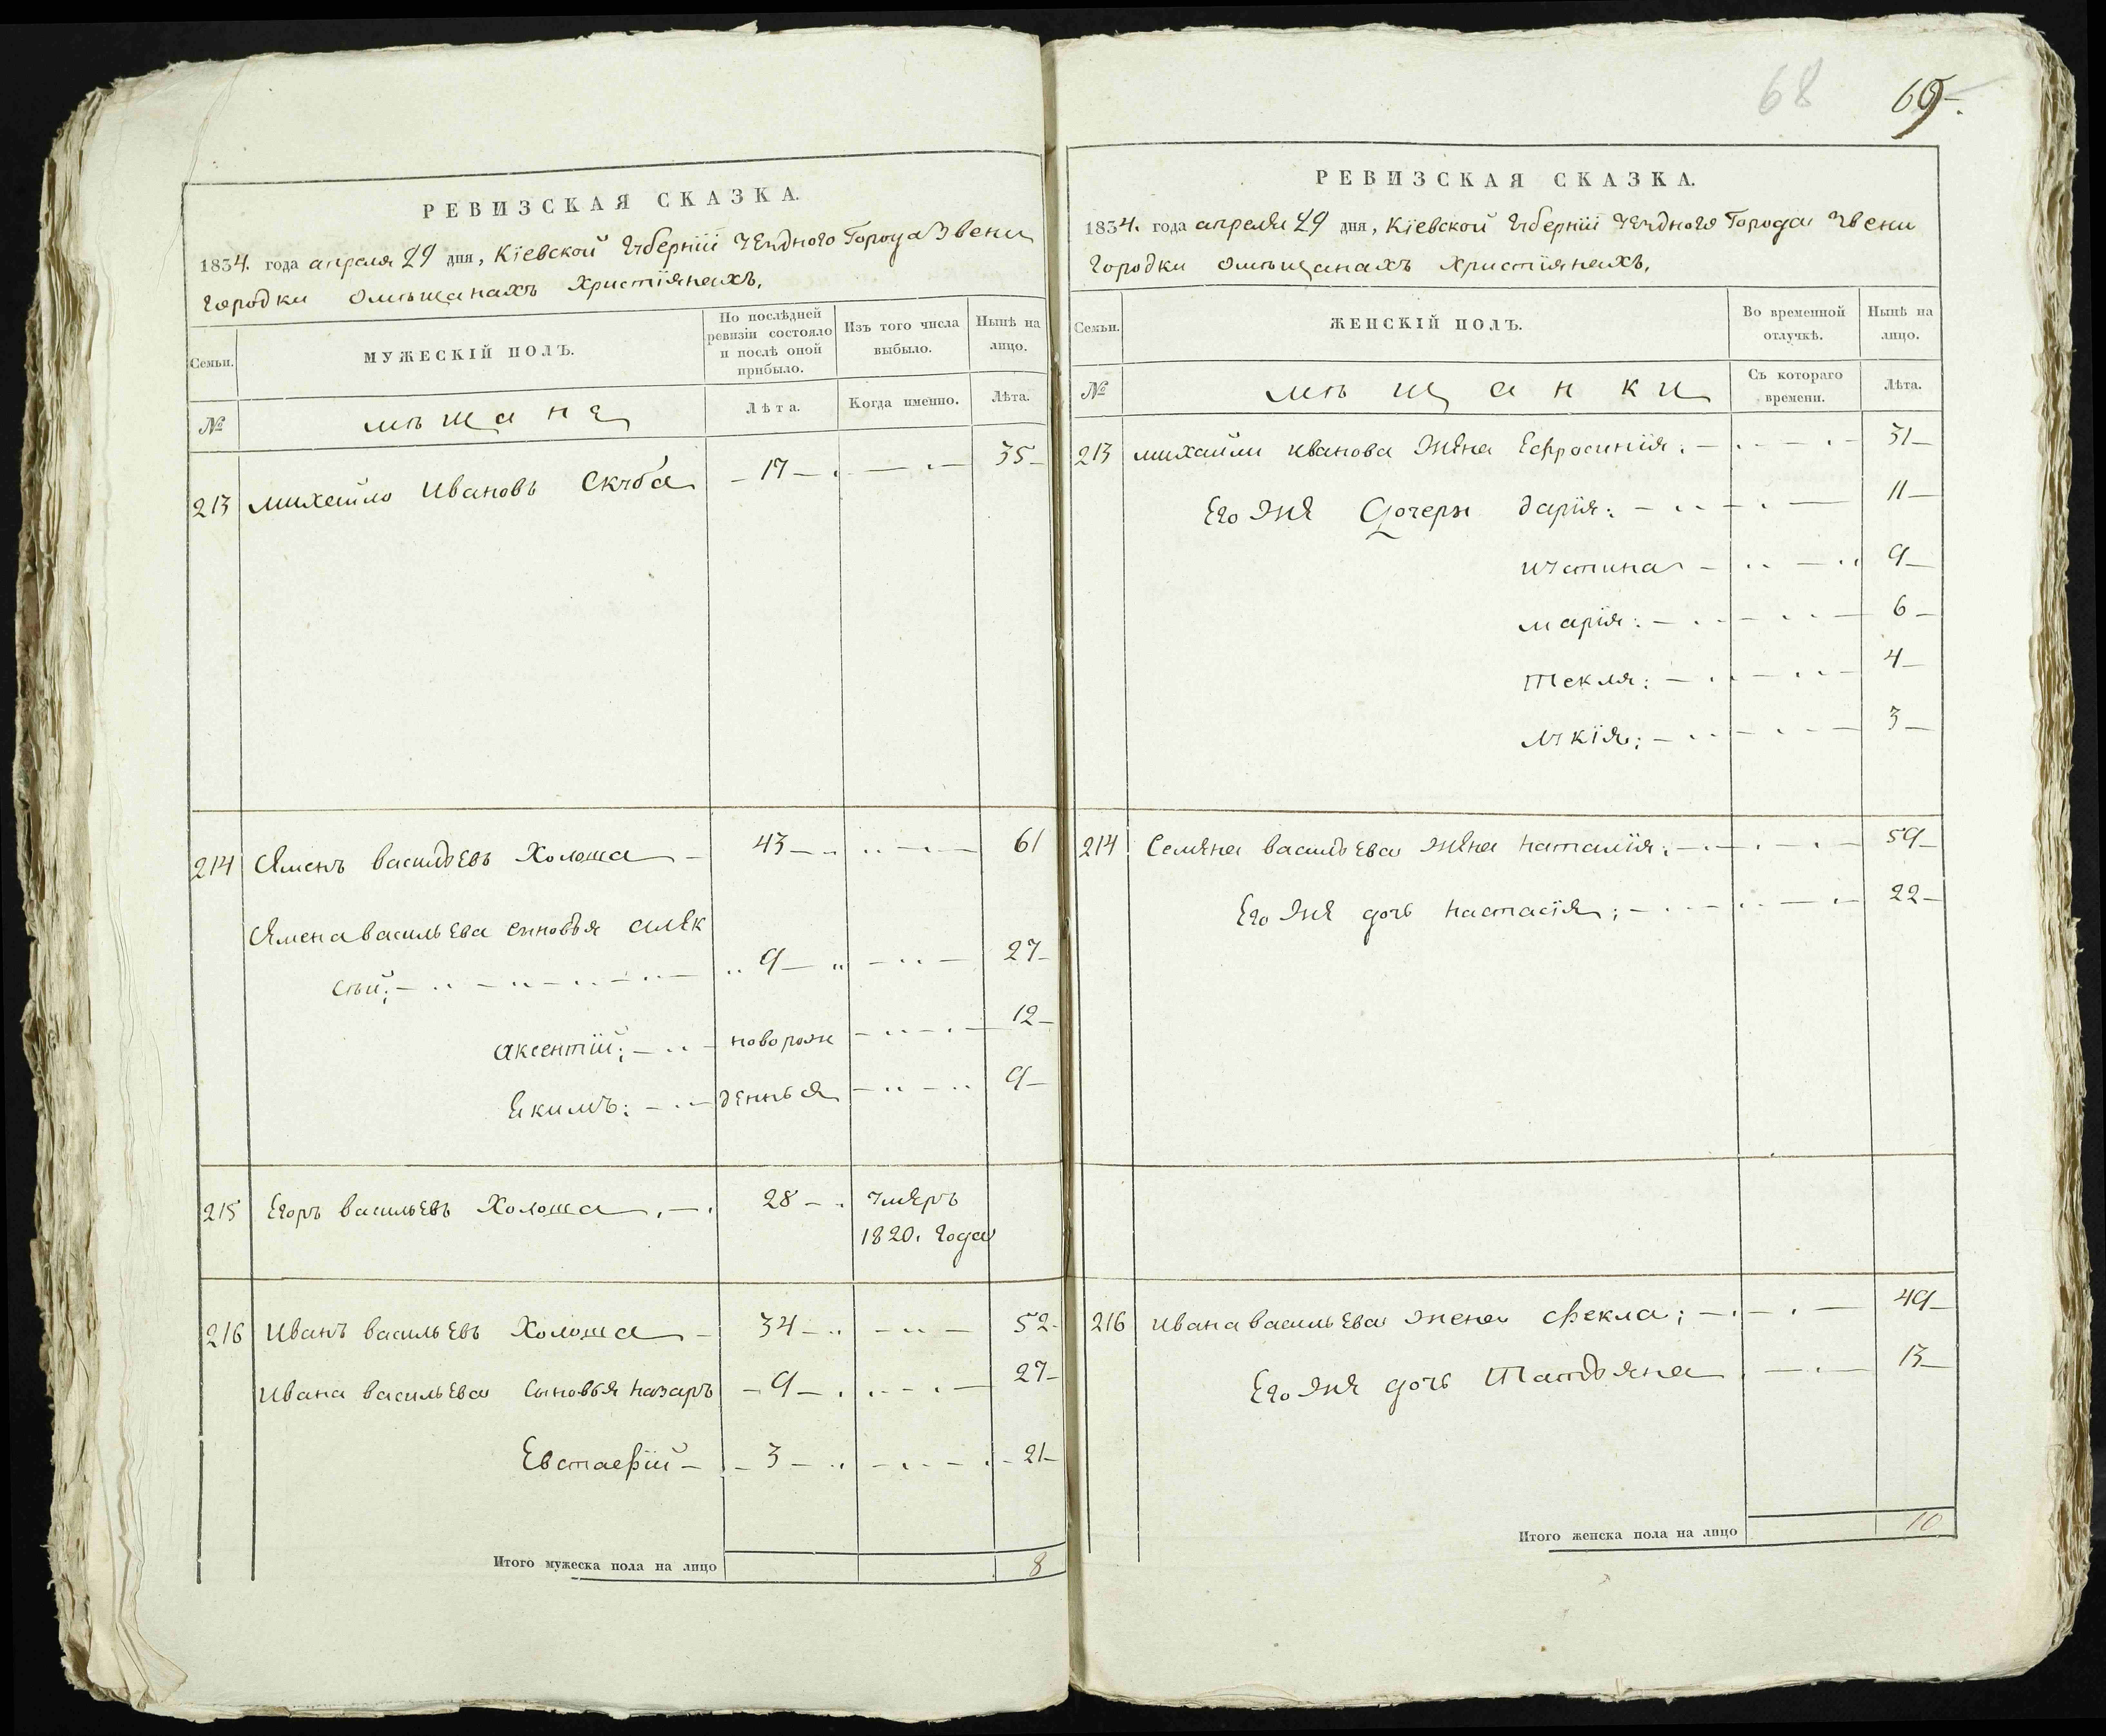 РЕВИЗСКАЯ СКАЗКА.
1834. года апреля 29 дня, Кіевской Губерніи уезднаго Города Звени
городки омѣщанахъ христіянахъ,
Семьи. МУЖЕСКІЙ ПОЛЪ. По послѣдней ревизіи состояло и послѣ оной прибыло. Изъ того числа выбыло. Нынѣ на лицо.
№ мѣщане Лѣта. Когда именно. Лѣта.
213 михайло Ивановъ Скуба 17 35
214 Сямenъ васильевъ Холоша 43 61
Сямена васильева сыновья алек
сѣй; 9 27
аксентій; новорож 12
Екимъ: денныя 9
215 Егоръ васильевъ Холоша 28 умеръ
1820. года
216 Иванъ васильевъ Холоша 34 52
Ивана васильева сыновья назаръ 9 27
Евстафій 3 21
Итого мужеска пола на лицо 8
68 69
РЕВИЗСКАЯ СКАЗКА.
1834. года апреля 29 дня, Кіевской Губерніи уезднаго Города Звени
городки омѣщанахъ христіянахъ,
Семьи. ЖЕНСКІЙ ПОЛЪ. Во временной отлучкѣ. Нынѣ на лицо.
№ мѣщанки Съ котораго времени. Лѣта.
213 михайли иванова жена Ефросинія: 31
Его же дочери дарія: 11
иустина 9
марія: 6
Текля: 4
лукія; 3
214 Семена васильева жена наталія: 59
Его же дочь настасія; 22
216 ивана васильева жена фекла; 49
Его же дочь Татьяна 13
Итого женска пола на лицо 10